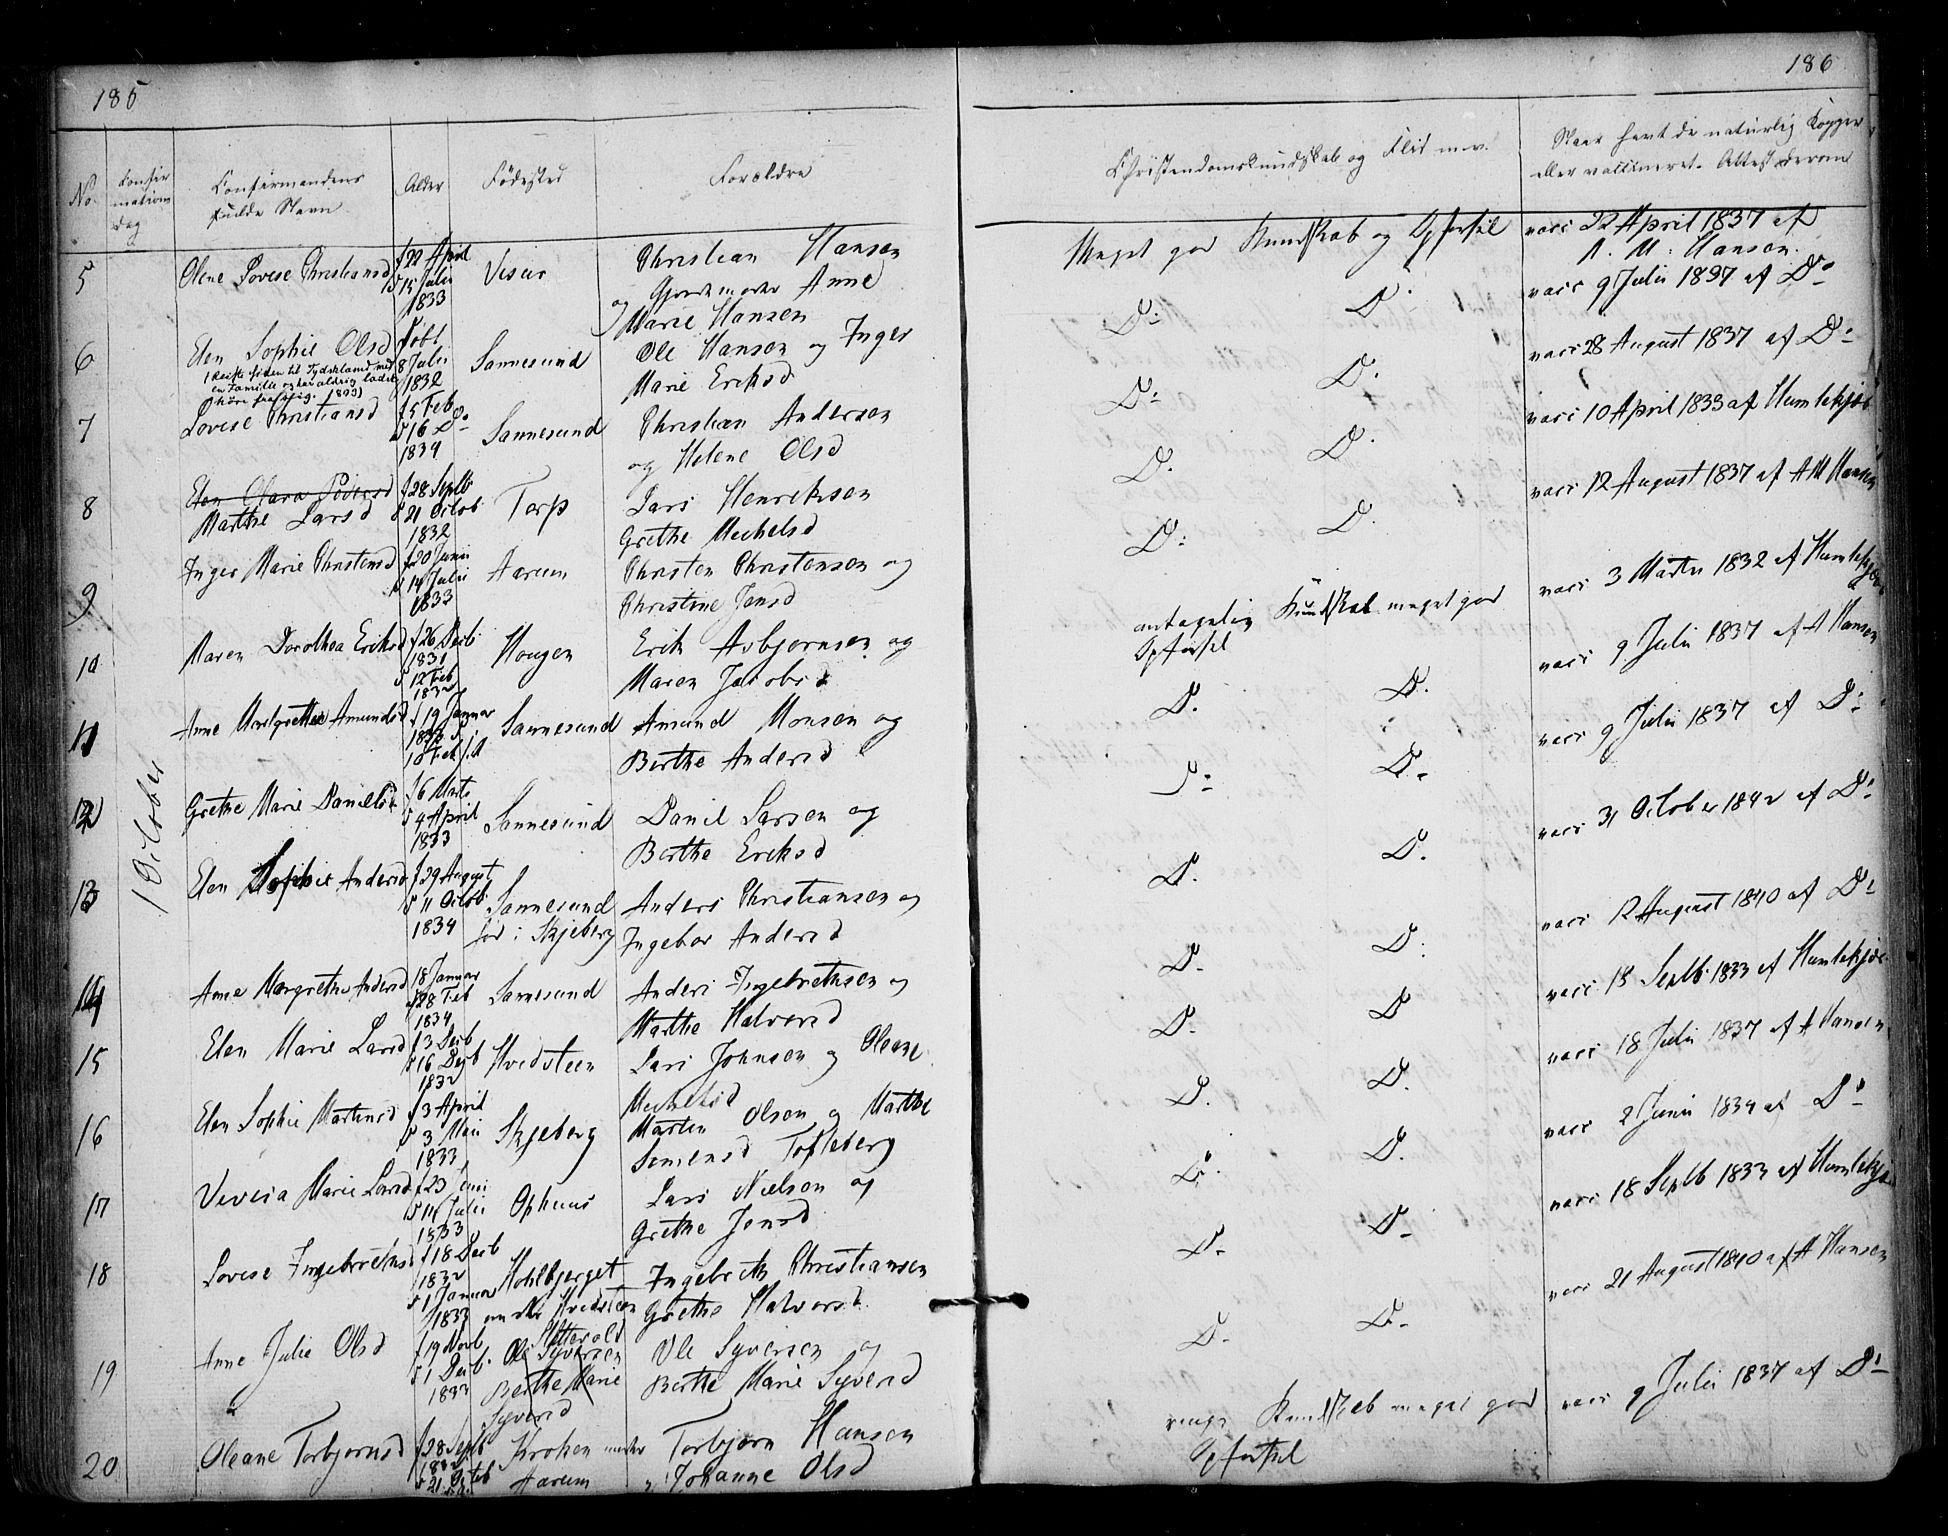 185
No.
Konfir
mations
dag
Confirmandens
fulde Navn
Alder
Fødested
Forældre
5
Olene Lovise Christiansd
f 22 April
D 15 Julii
1833
Viseur
Christian Hansen
og Gjordemoder Anne
Marie Hansen
6
Elen Sophie Olsd
(Reiste siden til Tydskland med
en Familie og har aldrig ladet
høre fra sig. 1893)
født
8 Julii
1832
Sannesund
Ole Hansen og Inger
Marie Eriksd
7
Lovise Christiansd
f 5 Feb
D 16 Do
1834
Sannesund
Christian Andersen
og Helene Olsd
8
Elen Olava Pedersd
Marthe Larsd
f 28 Septb
D 21 Octob
1832
Torp
Lars Henriksen
Grethe Michelsd
9
Inger Marie Christensd
f 20 Junii
D 14 Julii
1833
Aarum
Christen Christensen og
Christine Jensd
10
Maren Dorothea Eriksd
f 26 Decb
1831
D 12 Feb
1832
Hougen
Erik Asbjørnsen og
Maren Jacobsd
11
Anne Margrethe Amundsd
f 19 Januar
D
10 Feb
Sannesund
Amund Monsen og
Berthe Andersd
1 October
12
Grethe Marie Danielsd
f 6 Marts
D 4 April
1833
Sannesund
Daniel Larsen og
Berthe Eriksd
13
Elen Sophie Andersd
f 29 August
D 11 Octob
1834
Sannesund
før i Skjeberg
Anders Christiansen og
Ingebor Andersd
14
Anne Margrethe Andersd
18 Januar
D 28 Feb
1834
Sannesund
Anders Ingebrethsen og
Marthe Halversd
15
Elen Marie Larsd
f 3 Decb
D 16 Decb
1832
Hvidsteen
Lars Johnsen og Oleane
Michelsd
16
Elen Sophie Martinsd
f 3 April
D 3 Mai
1833
Skjeberg
Martin Olsen og Marthe
Simensd Tofteberg
17
Vivica Marie Larsd
f 23 Juni
D 14 Julii
1833
Ophuus
Lars Nielsen og
Grethe Jensd
18
Lovise Ingebrethsd
f 18 Decb
1832
D 1 Januar
1833
Hohlbjerget
under Hvidsteen
Ingebreth Christiansen
Grethe Halvorsd
19
Anne Julie Olsd
f 19 Novb
D 1 Decb
1832
Ole Syversen
Berthe Marie
Syversd
Ole Syversen og
Berthe Marie Syversd
20
Oleane Torbjørnsd
f 28 Septb
1832
D 21 Octob
Kroken under
Aarum
Torbjørn Hansen
Johanne Olsd
186
Christendomskundskab og Flid m.v.
Naar havt de naturlig Kopper
eller vaccineret. Attest derom
Meget god Kundskab og Opførsel
vacc 22 April 1837 af
A. M. Hansen.
Do Do
vacc 9 Julii 1837 af Do
Do Do
vacc 28 August 1837 af Do
Do Do
vacc 10 April 1833 af Humlekjær
Do Do
vacc 12 August 1837 af A M Hansen
antagelig Kundskab meget god
Opførsel
vacc 3 Marts 1832 af Humlekjær
vacc 9 Julii 1837 af A Hansen
Do Do
vacc 9 Julii 1837 af Do
Do Do
vacc 31 October 1842 af Do
Do Do
vacc 12 August 1840 af Do
Do Do
vacc 18 Septb 1833 af Humlekjær
Do Do
vacc 18 Julii 1837 af A Hansen
Do Do
vacc 2 Junii 1834 af Do
Do Do
vacc 18 Septb 1833 af Humlekjær
Do Do
vacc 21 August 1840 af A Hansen
Do Do
ringe Kundskab meget god
Opførsel
vacc 9 Julii 1837 af Do